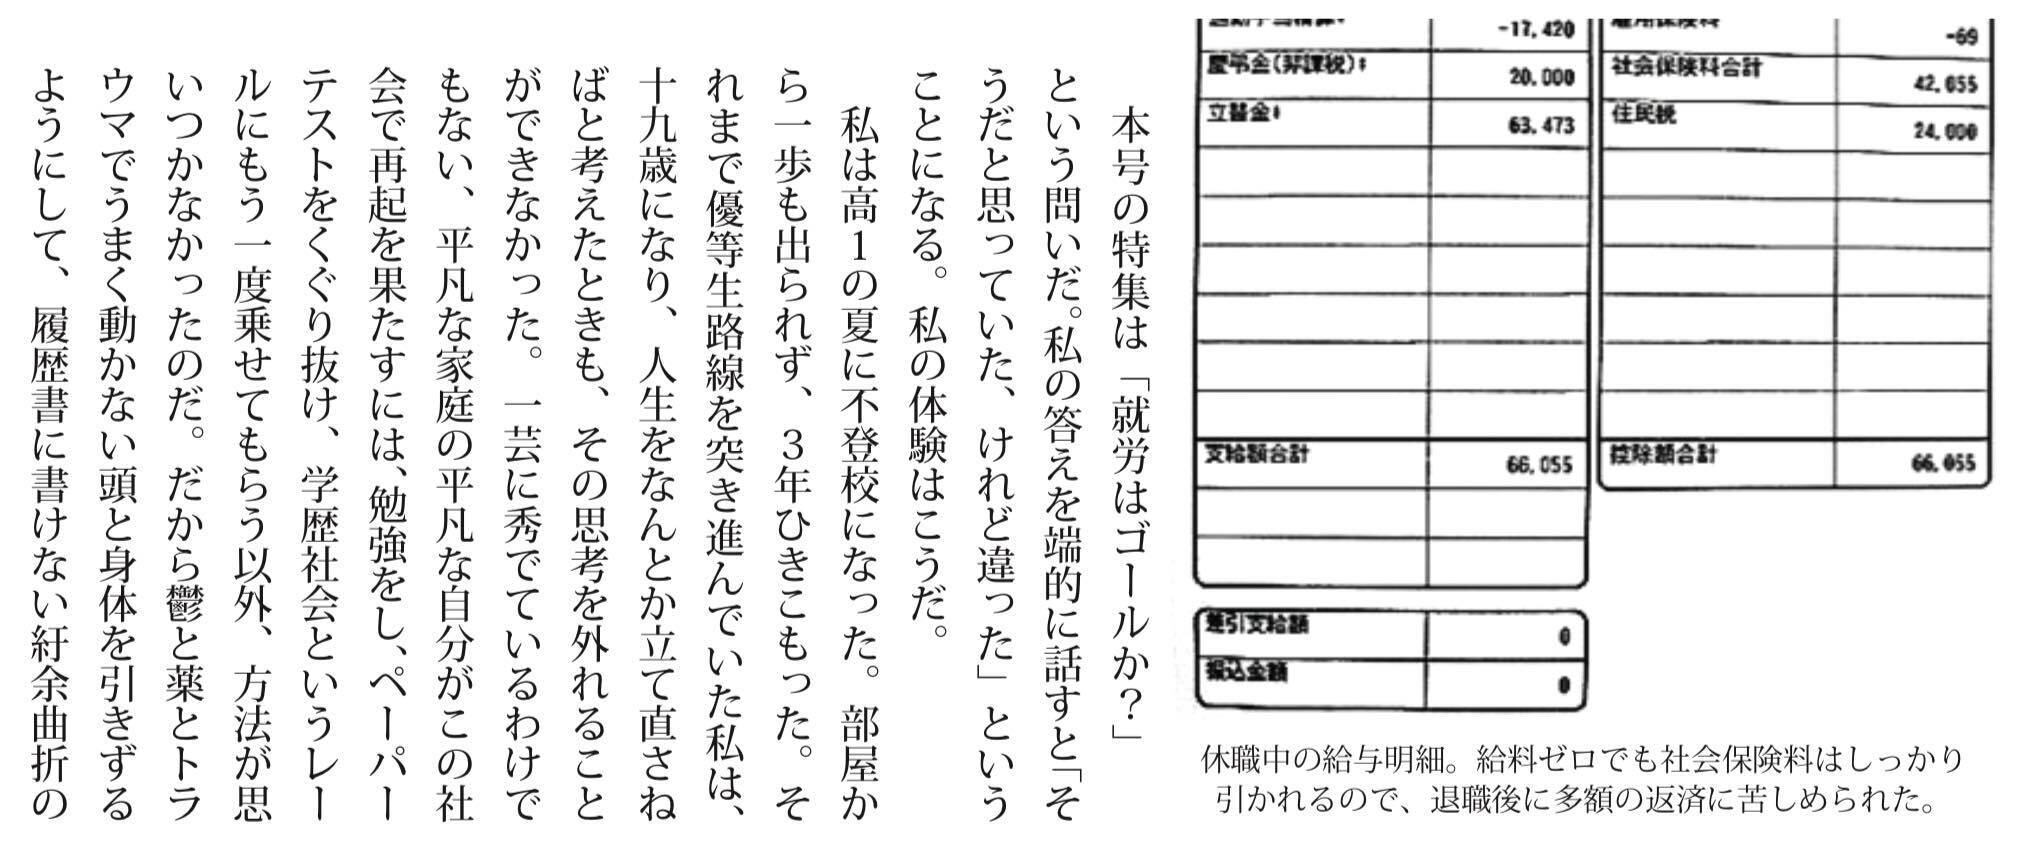 -17,420
慶弔金(非課税)
20,000
立替金
63,473
支給額合計
66,055
差引支給額
0
振込金額
0
雇用保険料
-69
社会保険料合計
42,055
住民税
24,000
控除額合計
66,055
休職中の給与明細。給料ゼロでも社会保険料はしっかり
引かれるので、退職後に多額の返済に苦しめられた。
本号の特集は「就労はゴールか？」
という問いだ。私の答えを端的に話すと「そ
うだと思っていた、けれど違った」という
ことになる。私の体験はこうだ。
私は高1の夏に不登校になった。部屋か
ら一歩も出られず、3年ひきこもった。そ
れまで優等生路線を突き進んでいた私は、
十九歳になり、人生をなんとか立て直さね
ばと考えたときも、その思考を外れること
ができなかった。一芸に秀でているわけで
もない、平凡な家庭の平凡な自分がこの社
会で再起を果たすには、勉強をし、ペーパー
テストをくぐり抜け、学歴社会というレー
ルにもう一度乗せてもらう以外、方法が思
いつかなかったのだ。だから鬱と薬とトラ
ウマでうまく動かない頭と身体を引きずる
ようにして、履歴書に書けない紆余曲折の